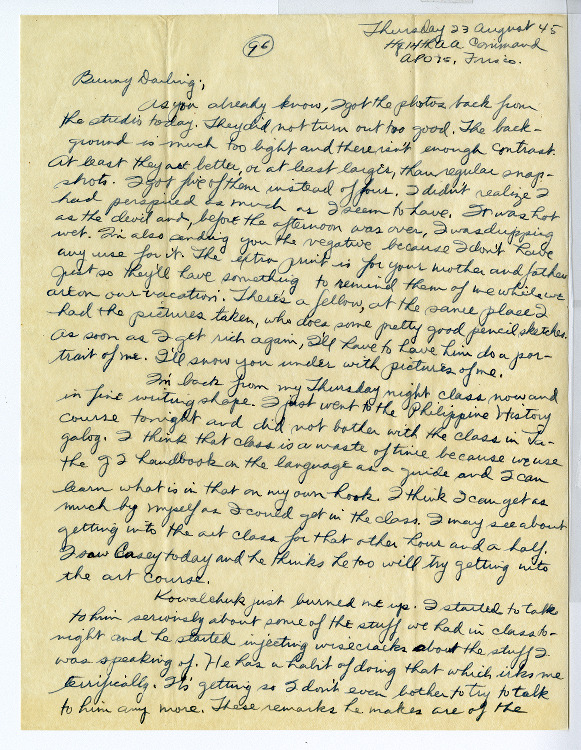 96
Thursday 23 August 45
Hq 14th AA Command
APO 75, Frisco.
Bunny Darling;
As you already know, I got the photos back from
the studio today. They did not turn out too good. The back-
ground is much too light and there isn't enough contrast.
At least they are better, or at least larger, than regular snap-
shots. I got five of them instead of four. I didn't realize I
had perspired as much as I seem to have. It was hot
as the devil and, before the afternoon was over, I was dripping
wet. I'm also sending you the negative because I don't have
any use for it. The extra print is for your mother and father
just so they'll have something to remind them of me while we
are on our vacation. There's a fellow, at the same place I
had the pictures taken, who does some pretty good pencil sketches.
As soon as I get rich again, I'll have to have him do a por-
trait of me. I'll snow you under with pictures of me.
I'm back from my Thursday night class now and
in fine writing shape. I just went to the Philippine History
course tonight and did not bother with the class in Ta-
galog. I think that class is a waste of time because we use
the G I handbook on the language as a guide and I can
learn what is in that on my own hook. I think I can get as
much by myself as I could get in the class. I may see about
getting into the art class for that other hour and a half.
I saw Casey today and he thinks he too will try getting into
the art course.
Kowalchuk just burned me up. I started to talk
to him seriously about some of the stuff we had in class to-
night and he started injecting wisecracks about the stuff I
was speaking of. He has a habit of doing that which irks me
terrifically. It's getting so I don't even bother to try to talk
to him any more. These remarks he makes are of the